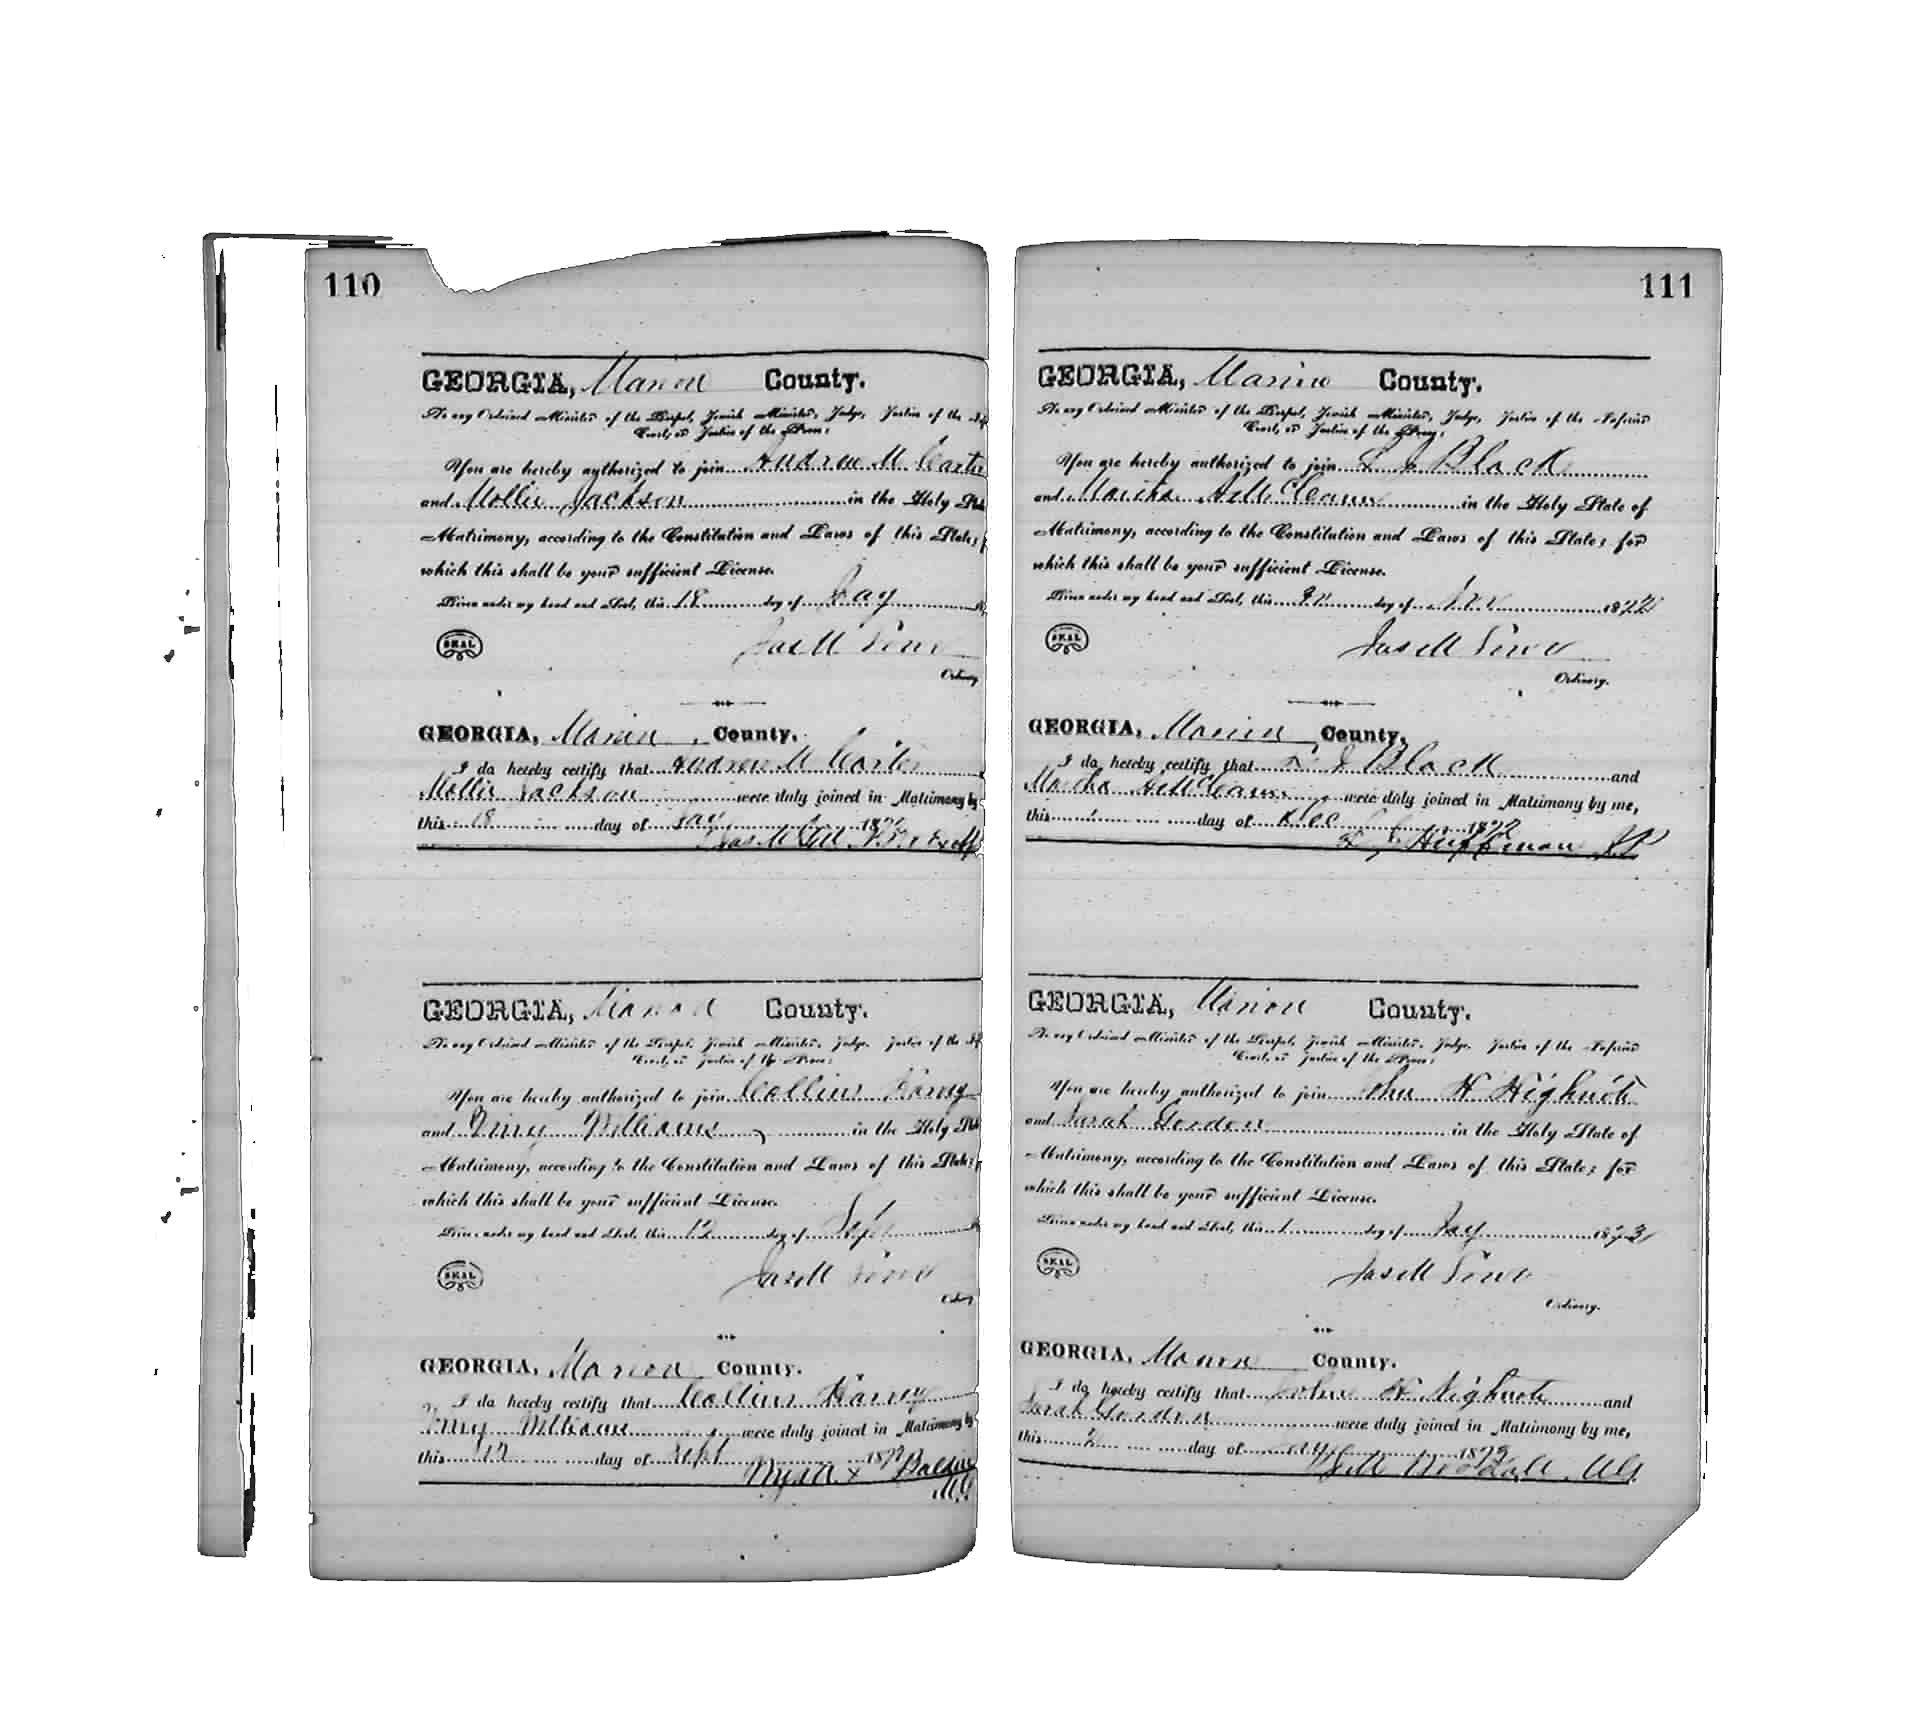 110
GEORGIA, Marion County.
To any Ordained Minister of the Gospel, Jewish Minister, Judge, Justice of the
Court, or Justice of the Peace:
You are hereby authorized to join Andrew M Carter
and Mollie Jackson in the Holy
Matrimony, according to the Constitution and Laws of this State;
which this shall be your sufficient License.
Given under my hand and Seal, this 18 day of
SEAL
Jas M
Ordinary
GEORGIA, Marion County.
I do hereby certify that Andrew M Carter
Mollie Jackson were duly joined in Matrimony by
this 18 day of 187
GEORGIA, Marion County.
To any Ordained Minister of the Gospel, Jewish Minister, Judge, Justice of the
Court, or Justice of the Peace:
You are hereby authorized to join Collins
and Williams in the Holy
Matrimony, according to the Constitution and Laws of this State;
which this shall be your sufficient License.
Given under my hand and Seal, this 12 day of Sept
SEAL
Jas M
GEORGIA, Marion County.
I do hereby certify that Collins
Williams were duly joined in Matrimony by
this 12 day of Sept 187
111
GEORGIA, Marion County.
To any Ordained Minister of the Gospel, Jewish Minister, Judge, Justice of the Inferior
Court, or Justice of the Peace:
You are hereby authorized to join Black
and Martha in the Holy State of
Matrimony, according to the Constitution and Laws of this State; for
which this shall be your sufficient License.
Given under my hand and Seal, this day of Nov 1872
SEAL
Jas M
Ordinary.
GEORGIA, Marion County,
I do hereby certify that Black and
Martha were duly joined in Matrimony by me,
this 1 day of Dec 1872
Huffman JP
GEORGIA, Marion County.
To any Ordained Minister of the Gospel, Jewish Minister, Judge, Justice of the Inferior
Court, or Justice of the Peace:
You are hereby authorized to join John H Highnote
and Sarah Gordon in the Holy State of
Matrimony, according to the Constitution and Laws of this State; for
which this shall be your sufficient License.
Given under my hand and Seal, this 1 day of 1873
SEAL
Jas M
Ordinary.
GEORGIA, Marion County.
I do hereby certify that John H Highnote and
Sarah Gordon were duly joined in Matrimony by me,
this 2 day of 187